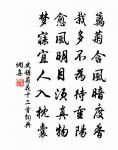 萬菊含風暗度香
栽多不為待重陽
愈風明目須真物
夢寐宜人入枕囊
史鑄菊花十二首詞典